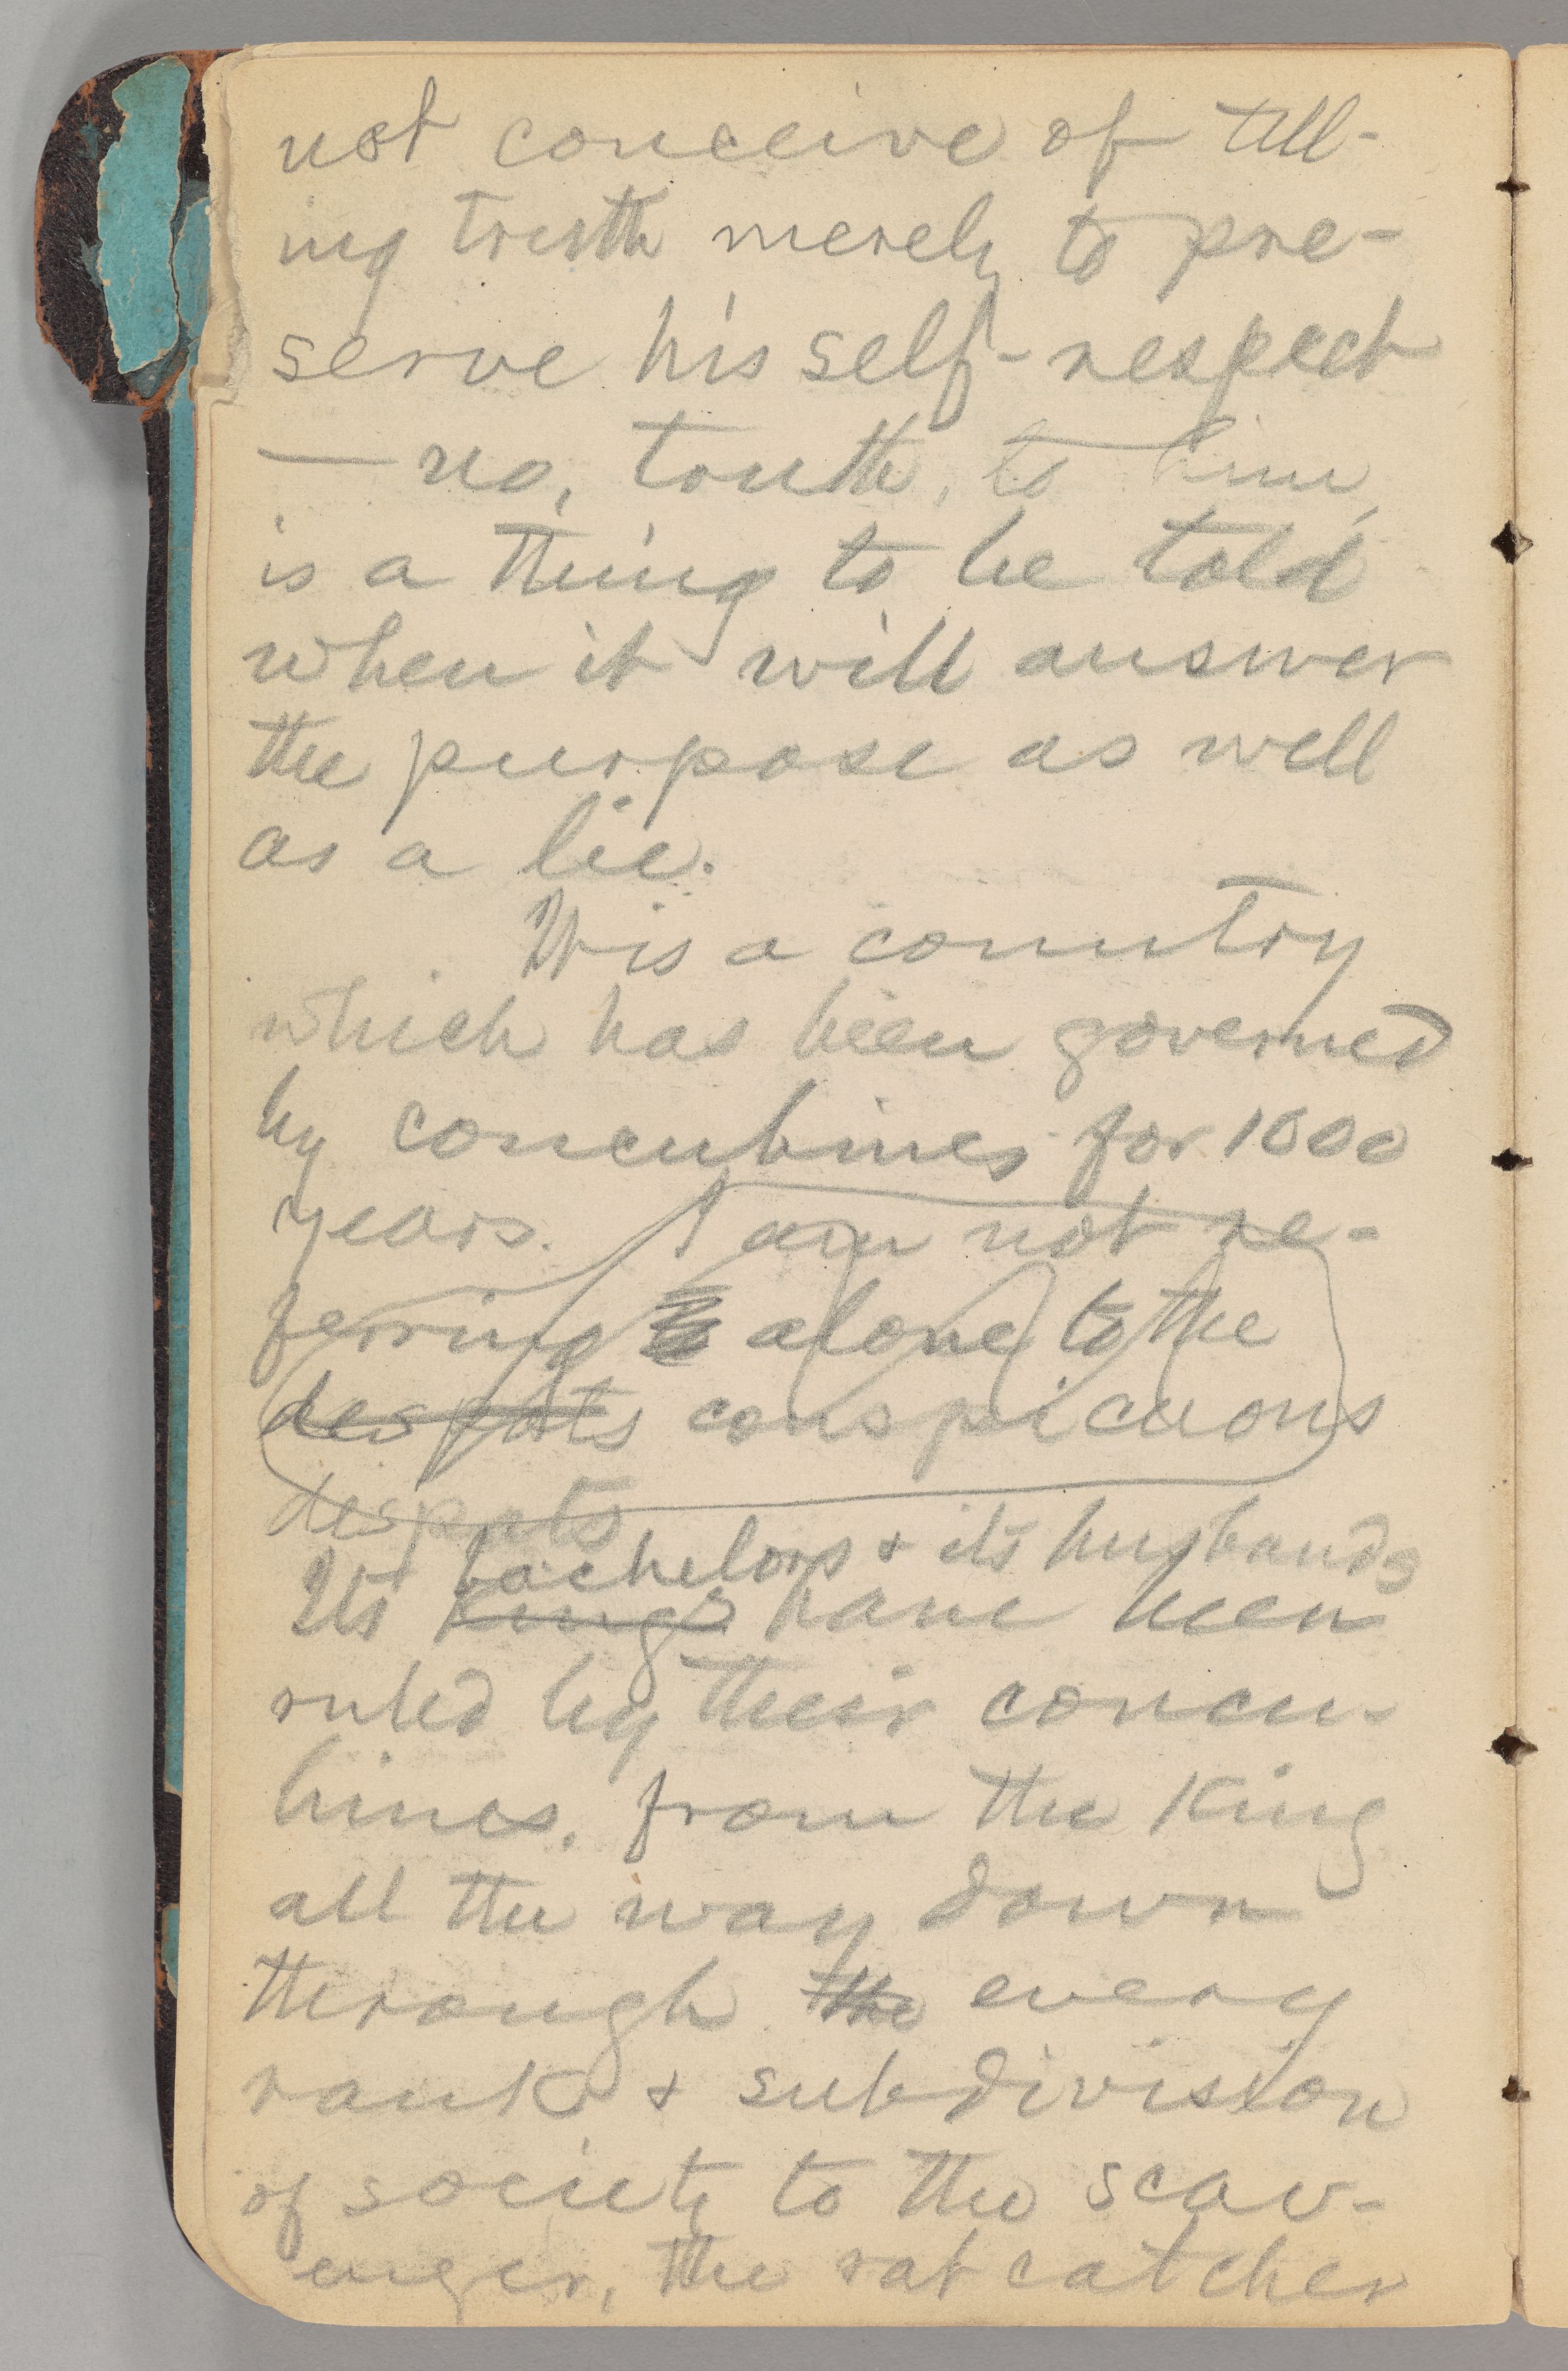 not conceive of tell-
ing truth merely to pre-
serve his self-respect
— no, truth, to him,
is a thing to be told
when it will answer
the purpose as well
as a lie.
It is a country
which has been governed
by concubines for 1000
years. I am not re-
ferring alone to the
despots conspicuous
despots
bachelors & its husbands
Its kings have been
ruled by their concu-
bines, from the King
all the way down
through the every
rank & subdivision
of society to the scav-
enger, the rat catcher